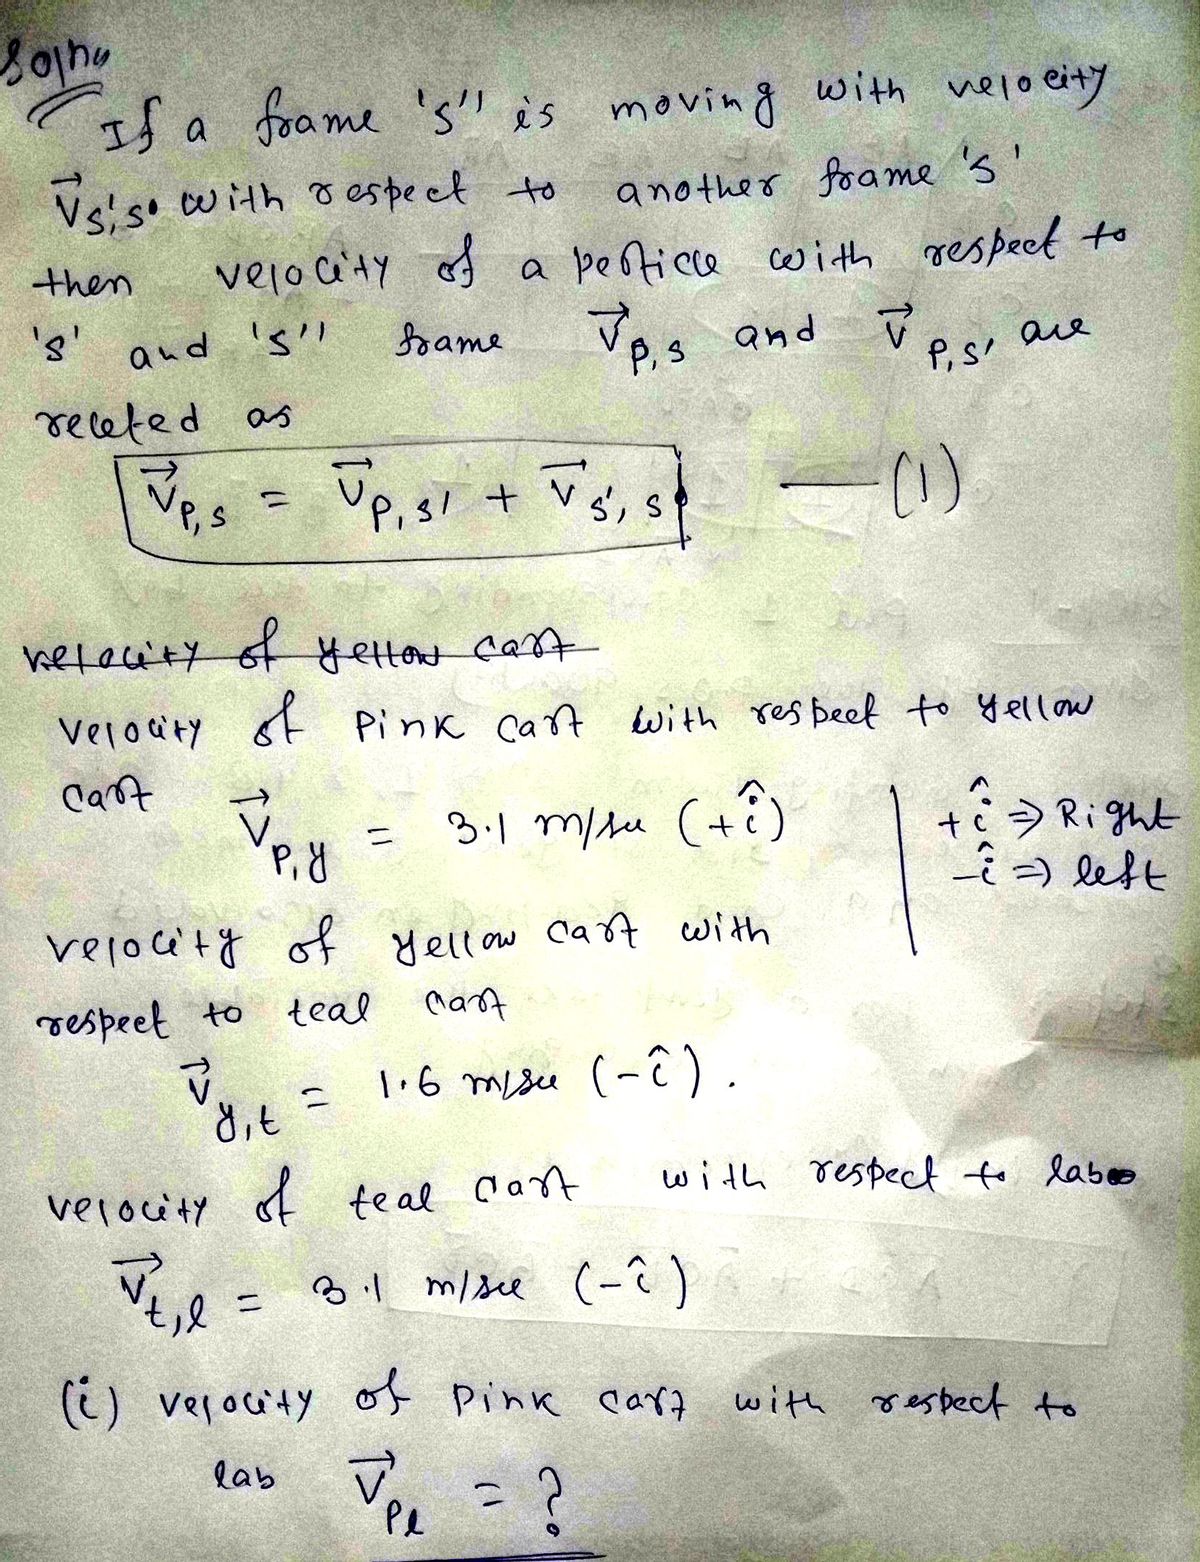 Soln
If a frame 's'' is moving with velocity
V⃗s',s with respect to another frame 's'
then velocity of a particle with respect to
's' and 's'' frame V⃗P,s and V⃗P,s' are
releted as
V⃗P,s = V⃗P,s' + V⃗s',s —(1)
velocity of yellow cart
velocity of Pink cart with respect to yellow
cart V⃗P,y = 3.1 m/sec (+î)
+î ⇒ Right
-î ⇒ left
velocity of yellow cart with
respect to teal cart
V⃗y,t = 1.6 m/sec (-î).
velocity of teal cart with respect to lab
V⃗t,l = 3.1 m/sec (-î)
(i) velocity of Pink cart with respect to
lab V⃗Pl = ?